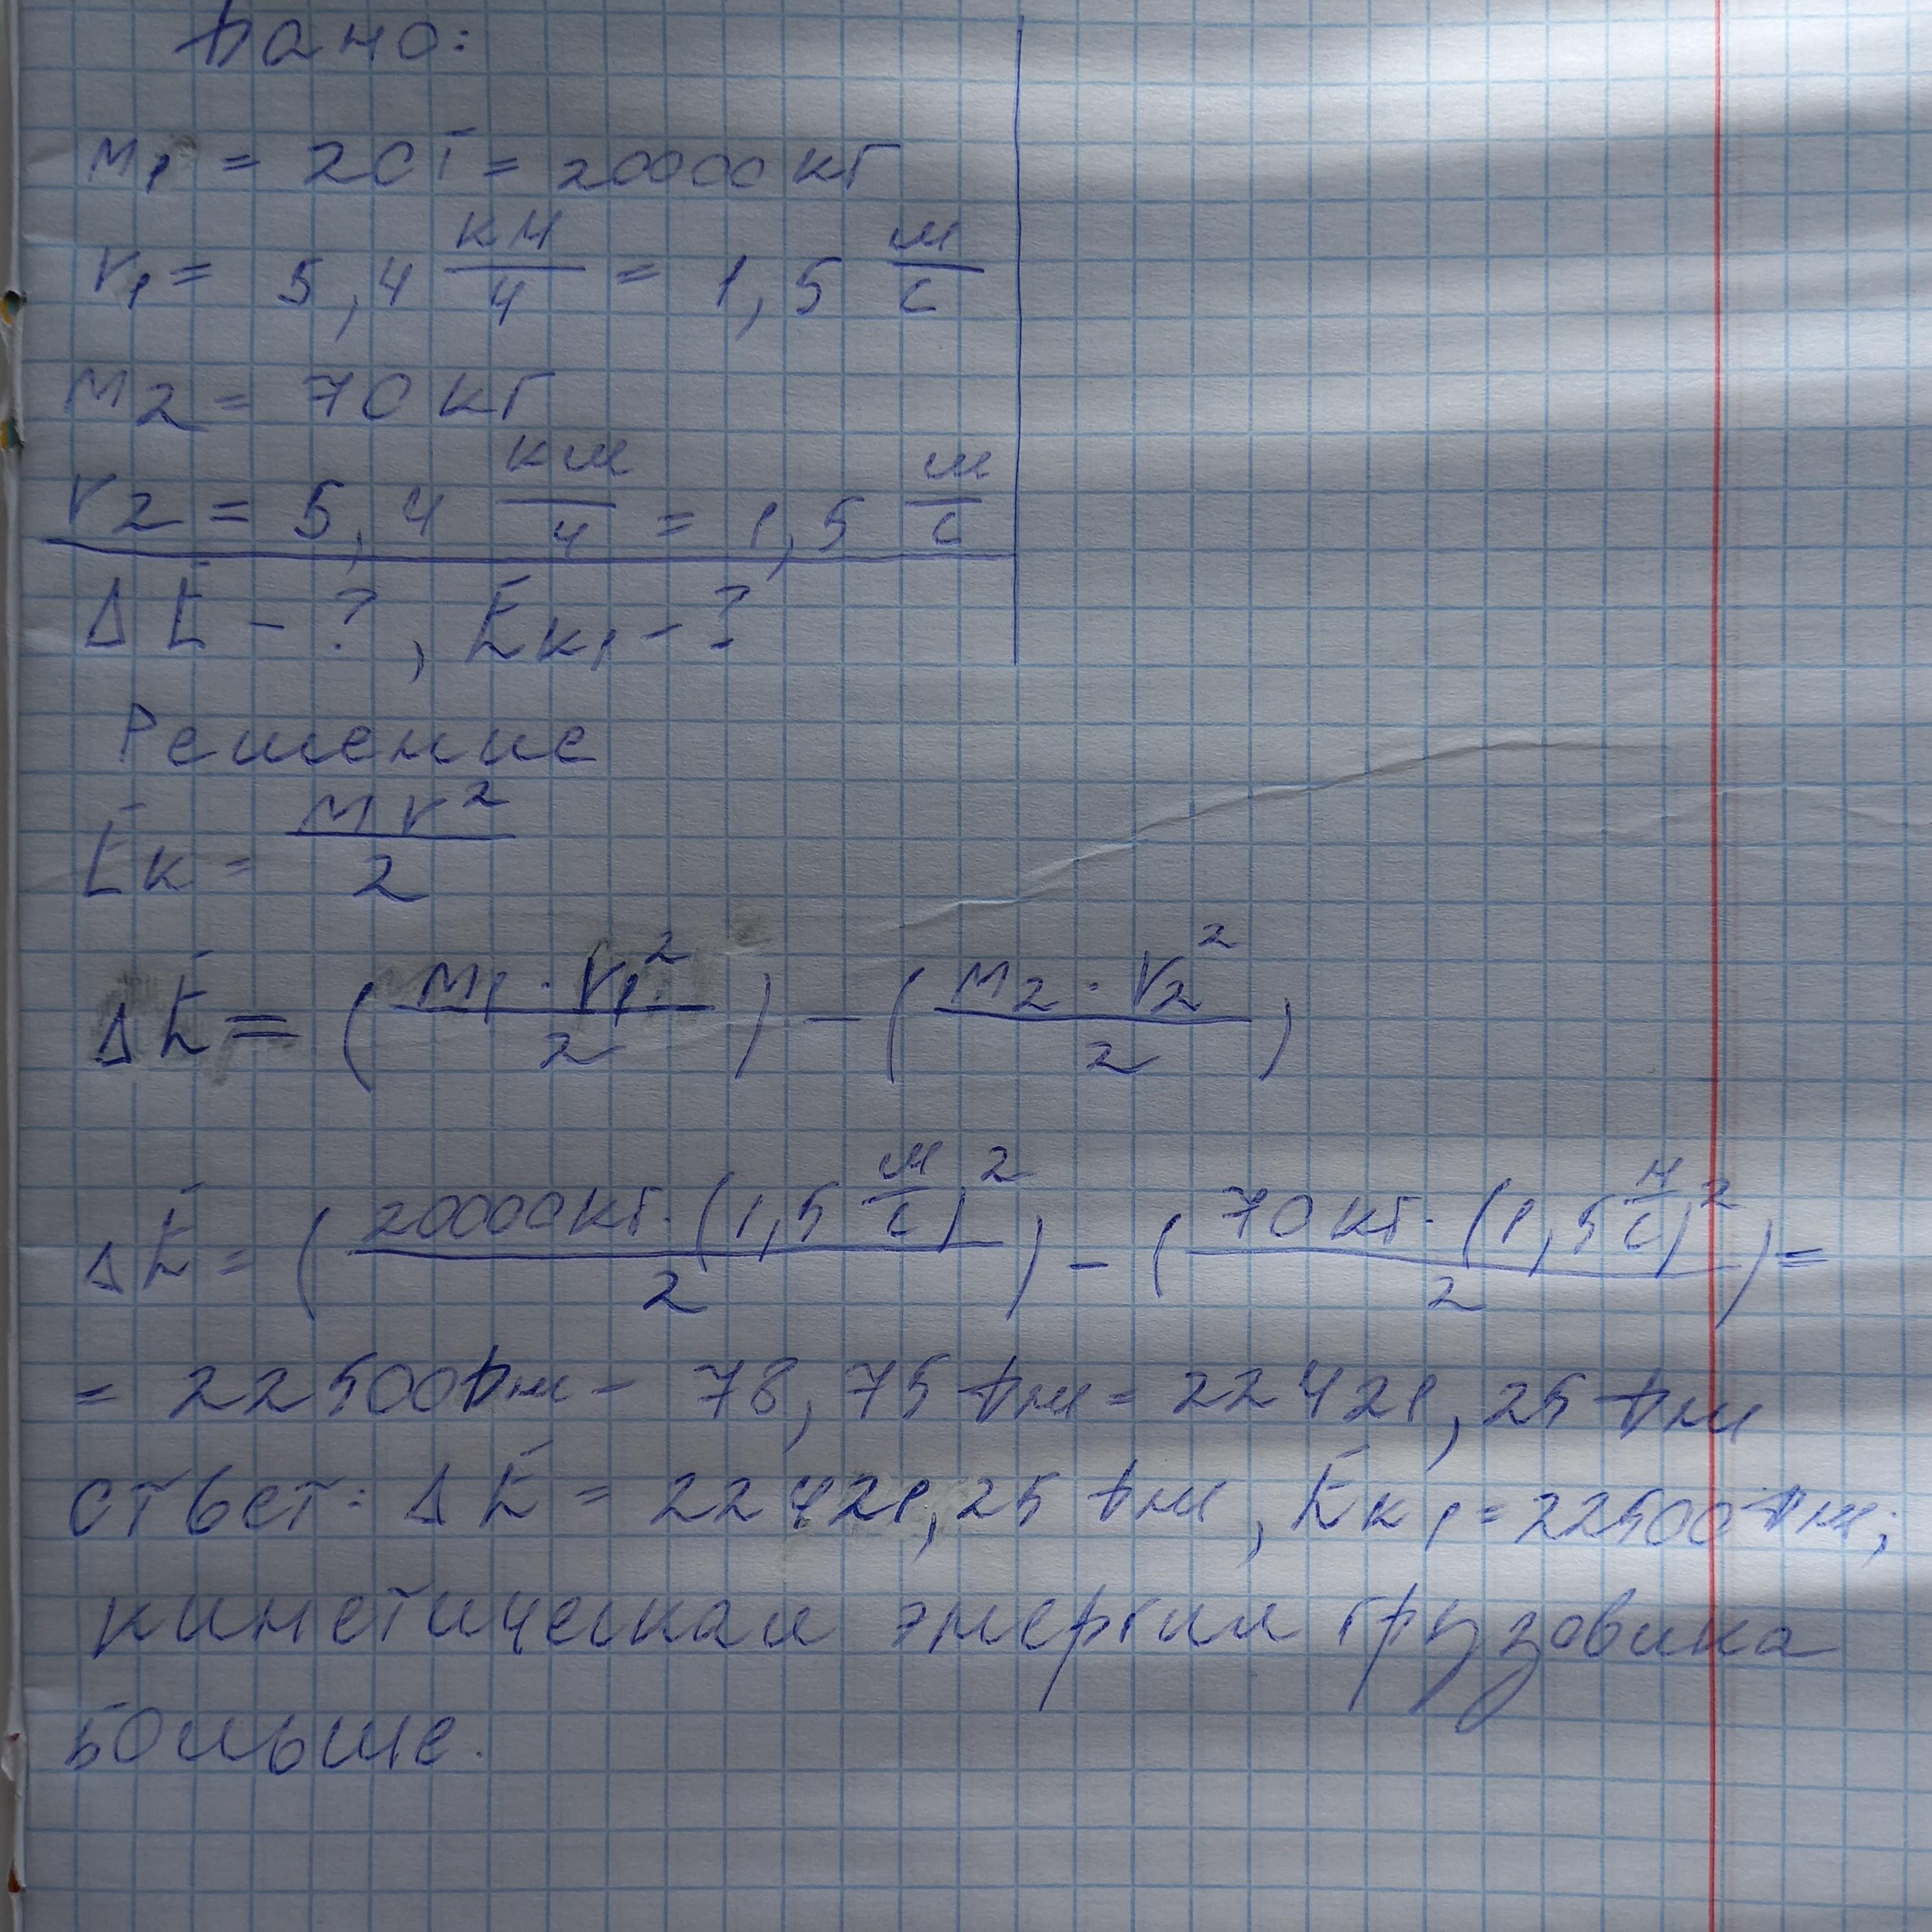 Дано:
m₁ = 20т = 20000 кг
v₁ = 5,4 км/ч = 1,5 м/с
m₂ = 70 кг
v₂ = 5,4 км/ч = 1,5 м/с
ΔE - ?, Eк₁ - ?
Решение
Eк = mv²/2
ΔE = (m₁·v₁²/2) - (m₂·v₂²/2)
ΔE = (20000кг·(1,5 м/с)²/2) - (70кг·(1,5 м/с)²/2) =
= 22500Дж - 78,75 Дж = 22421,25 Дж
Ответ: ΔE = 22421,25 Дж, Eк₁ = 22500 Дж;
кинетическая энергия грузовика
больше.